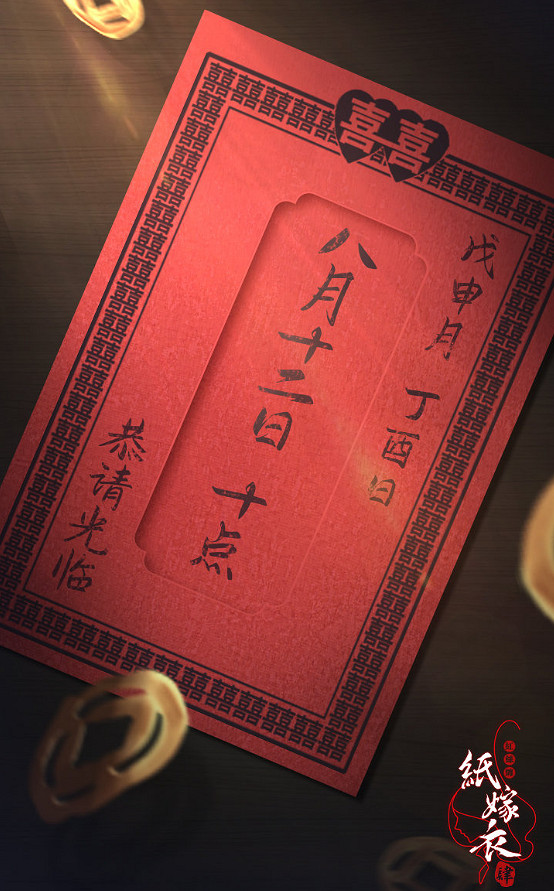 囍
戊申月 丁酉日
八月十二日 十点
恭请光临
紙嫁衣
肆